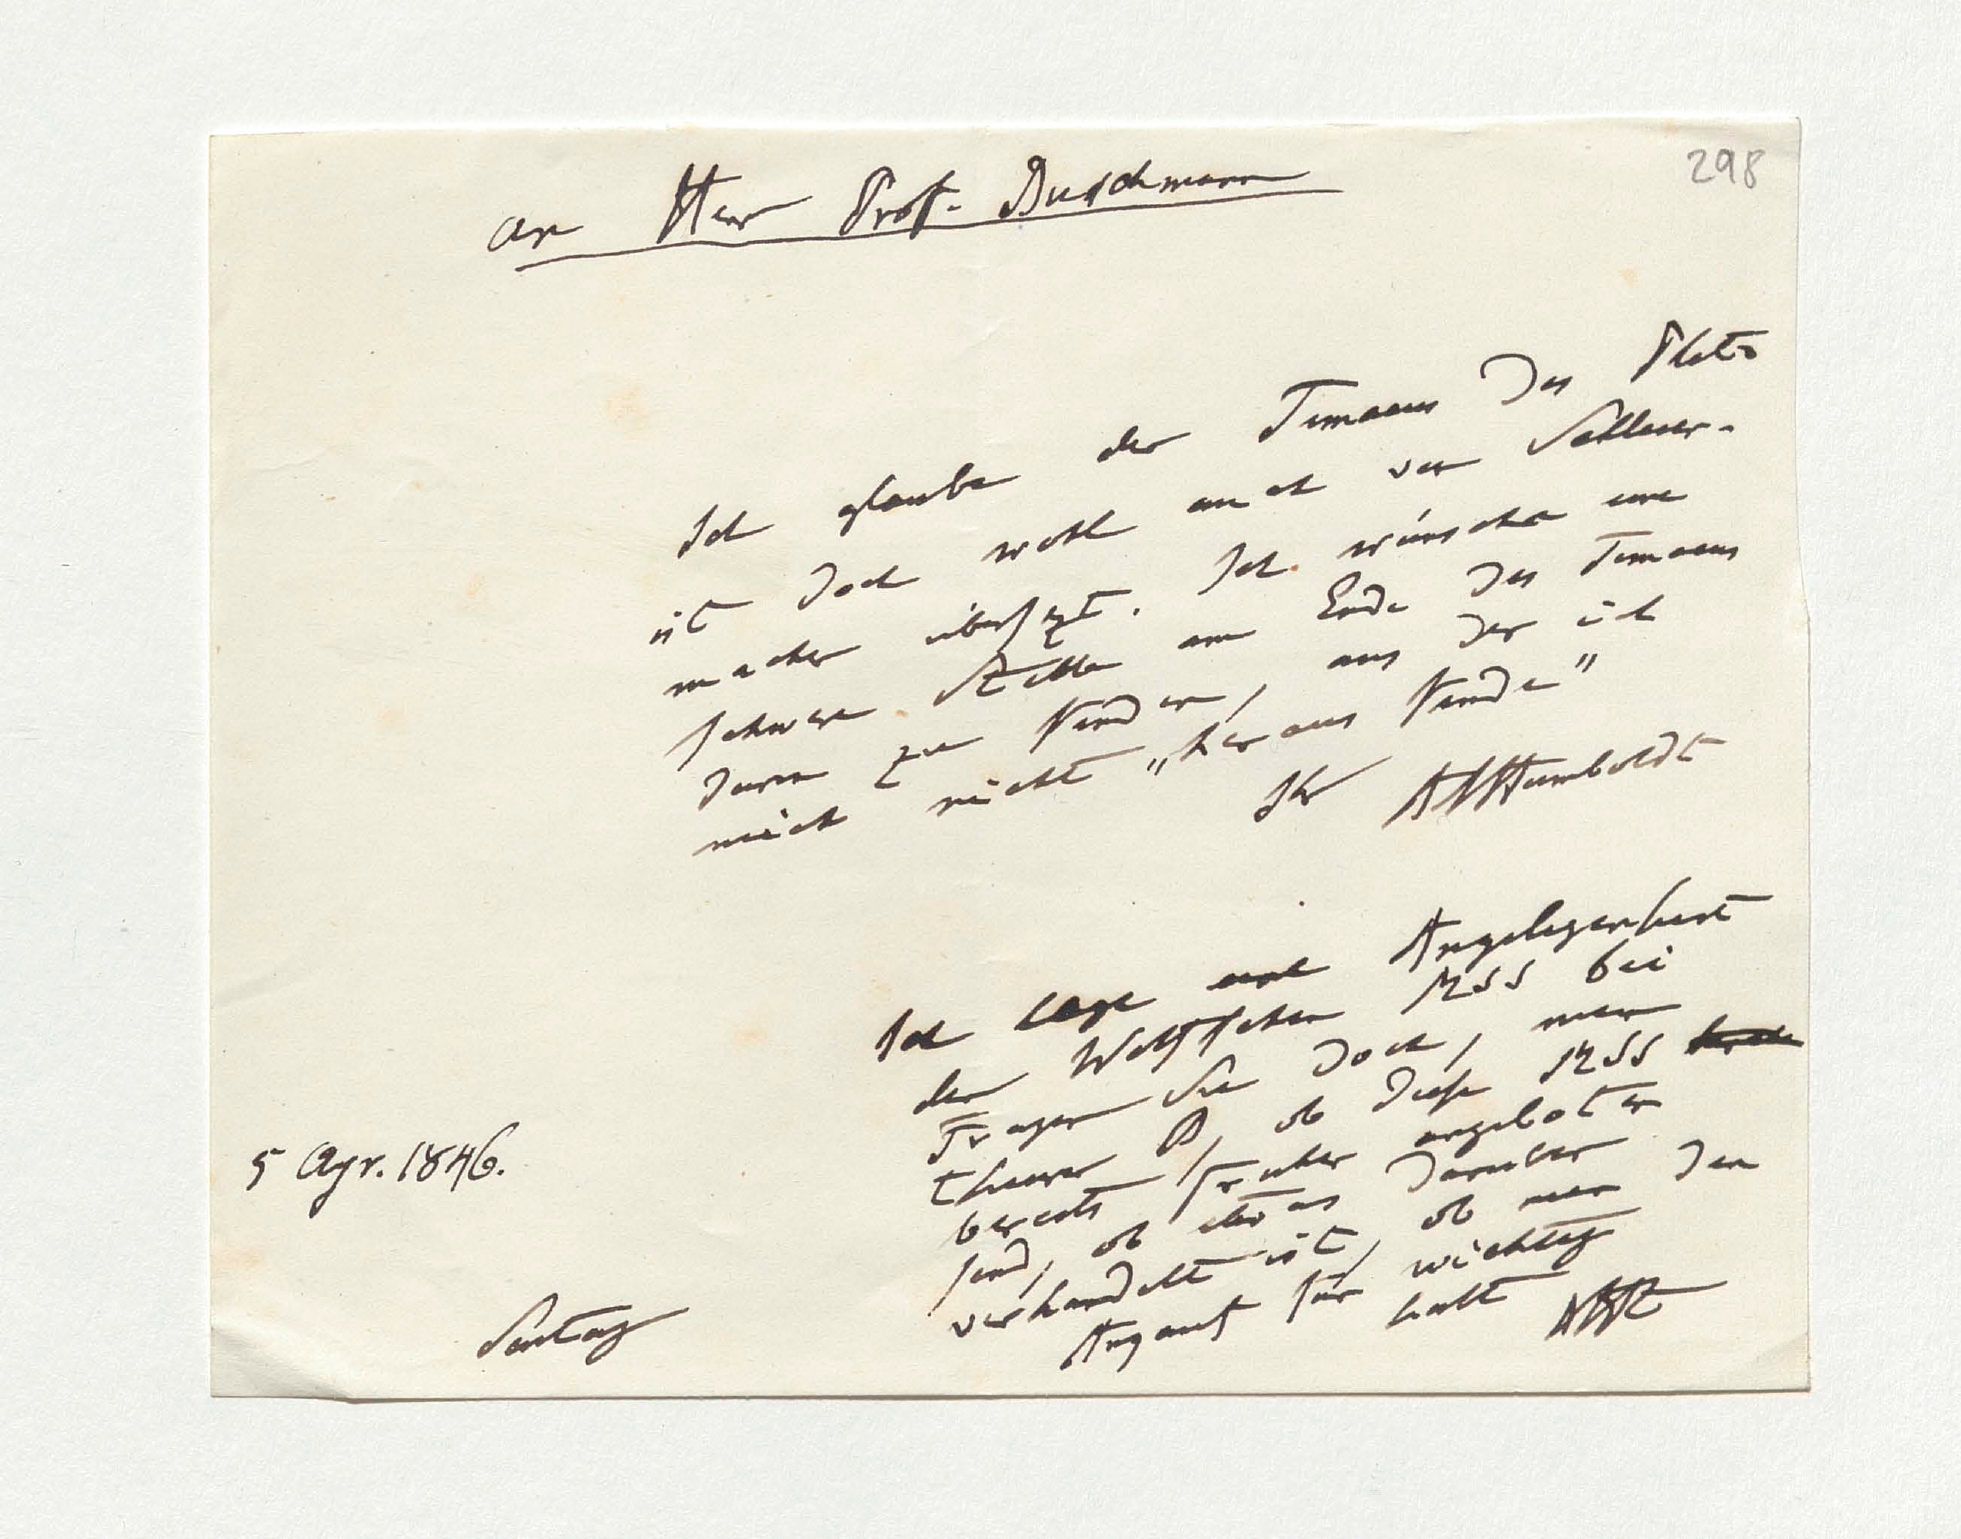 298
an Herr Prof. Buschmann
Ich glaube der Timaeus des Plato
ist doch wohl auch von Schleier-
macher übersezt. Ich wünsche eine
schwere Stelle am Ende des Timaeus
darin zu finden, aus der ich
mich nicht „heraus finde"
Ihr AvHumboldt
Ich lege eine Angelegenheit
der Wolfschen MSS bei
Fragen Sie doch, mein
theurer B, ob diese MSS
bereits früher angeboten
sind, ob etwas darüber
verhandelt ist, ob man den
Ankauf für wichtig
hält AvHt
5 Apr. 1846.
Sontag